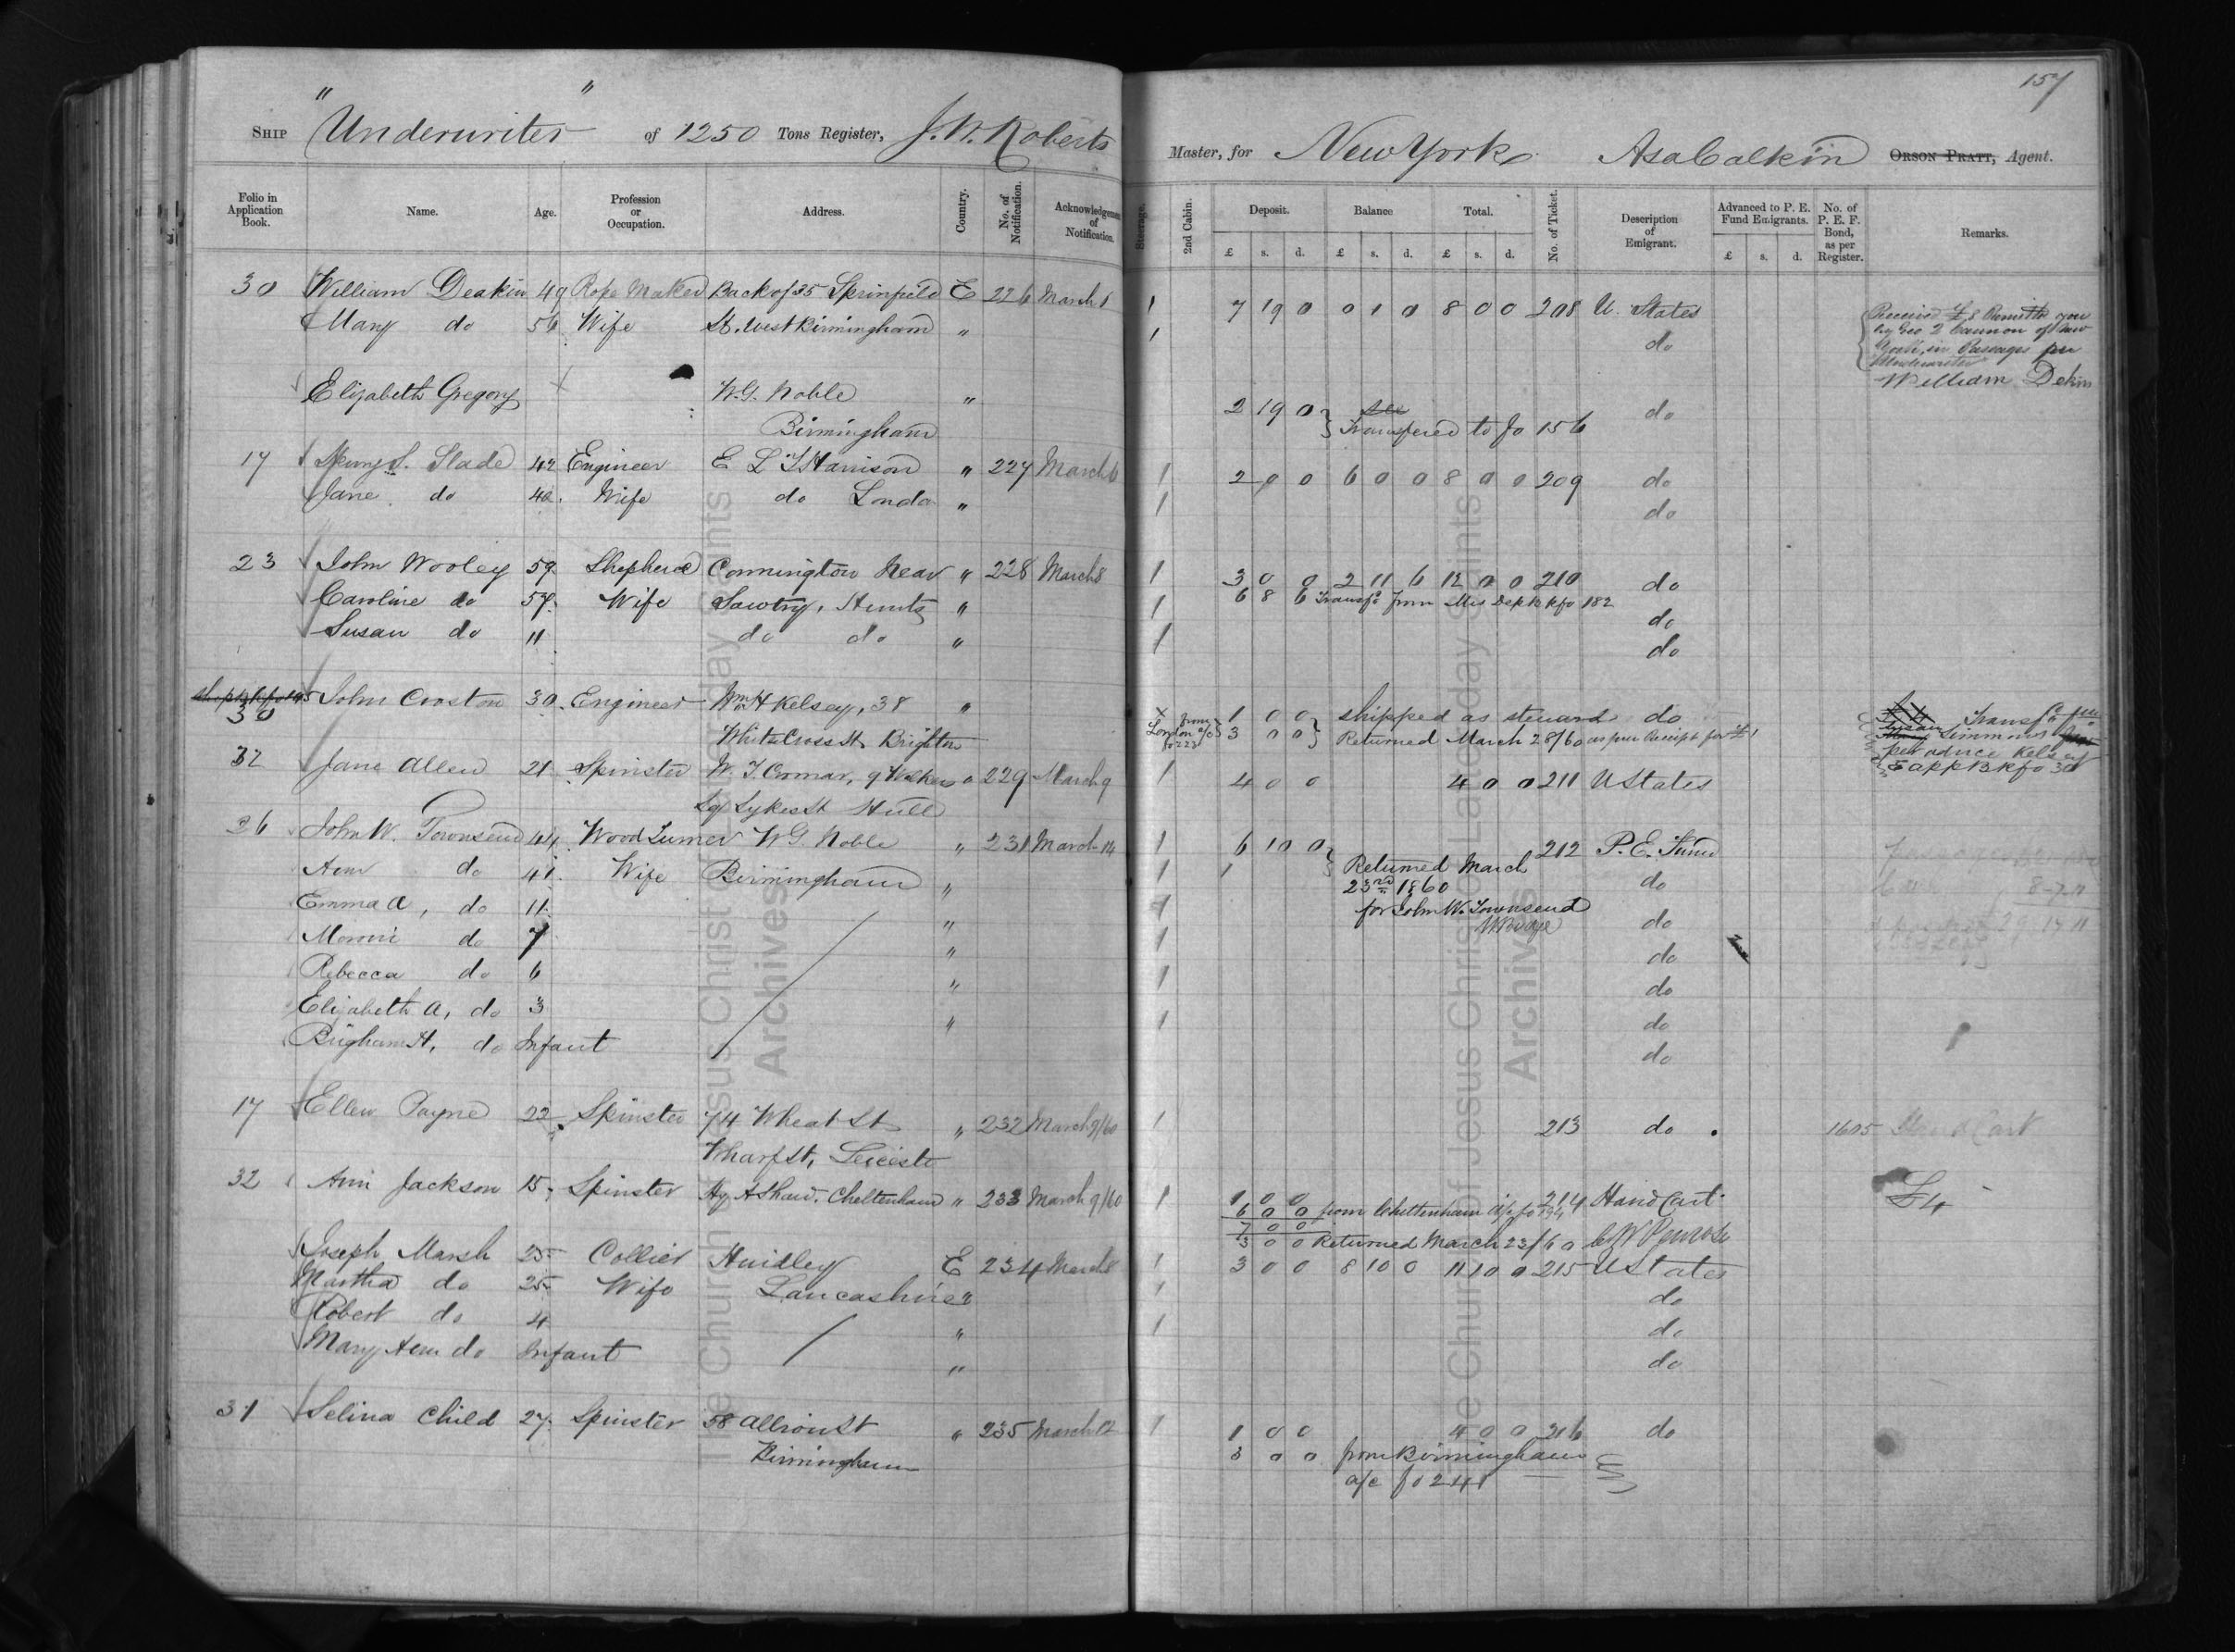 157
Ship "Underwriter" of 1250 Tons Register, J. W. Roberts Master, for New York Asa Calkin Orson Pratt, Agent.
Folio in Application Book. Name. Age. Profession or Occupation. Address. Country. No. of Notification. Acknowledgement of Notification. Steerage. 2nd Cabin. Deposit. Balance Total. No. of Ticket. Description of Emigrant. Advanced to P. E. Fund Emigrants. No. of P. E. F. Bond, as per Register. Remarks.
£ s. d. £ s. d. £ s. d. £ s. d.
30 William Deakin 49 Rope Maker Back of 35 Sprinfield E 226 March 1 1 7 19 0 0 1 0 8 0 0 208 U. States
Mary do 56 Wife St. West Birmingham " 1 do
Received £8 Remitted you
by Geo Q Cannon of New
York, in Passages per
Underwriter
William Dekin
Elizabeth Gregory W. G. Noble " 2 19 0 see do
Birmingham Transfered to fo 156
17 Slade 42 Engineer E L T Harrison " 227 March 6 1 2 0 0 6 0 0 8 0 0 209 do
Jane do 42. Wife do London " 1 do
23 John Wooley 59. Shepherd Connington Near " 228 March 8 1 3 0 0 2 11 6 12 0 0 210 do
Caroline do 57. Wife Sawtry, Hunts " 1 6 8 6 Transfd from Mis Dep Bk fo 182 do
Susan do 11 do do " 1 do
30 John Croston 30. Engineer Wm H Kelsey, 38 " x 1 0 0 shipped as steward do
White Cross St Brighton from London a/c fo 223 3 0 0 Returned March 28/60 as per Receipt for £1
Transfd per
Simmons
per advice Kelsey
E app Bk fo 30
32 Jane Allen 21. Spinster W. T. Cromar, 9 Walkers " 229 March 9 1 4 0 0 4 0 0 211 U States
Sq Sykes St Hull
26 John W. Townsend 44. Wood Turner W G. Noble " 231 March 14 1 6 10 0 212 P. E. Fund
Ann do 41. Wife Birmingham " 1 Returned March do
Emma A, do 11. " 1 23rd 1860 do
for John W. Townsend
W Budge
Moroni do 7 " 1 do
Rebecca do 6 " 1 do
Elizabeth A, do 3 " 1 do
Brigham H, do Infant do
17 Ellen Payne 22. Spinster 74 Wheat St " 232 March 9/60 1 213 do 1605 Hand Cart
Wharf St, Leicester
32 Ann Jackson 15, Spinster Hy A Shaw. Cheltenham " 233 March 9/60 1 1 0 0 214 Hand Cart £4
6 0 0 from Cheltenham a/c fo 194
7 0 0
3 0 0 Returned March 23/60 C W Penrose
Joseph Marsh 25 Collier Hindley E 234 March 8 1 3 0 0 8 10 0 11 10 0 215 U States
Martha do 25 Wife Lancashire " 1 do
Robert do 4 " 1 do
Mary Ann do Infant " do
31 Selina Child 27. Spinster 58 Allison St " 235 March 12 1 1 0 0 4 0 0 216 do
Birmingham 3 0 0 from Birmingham
a/c fo 241
The Church of Jesus Christ of Latter-day Saints
Archives
The Church of Jesus Christ of Latter-day Saints
Archives